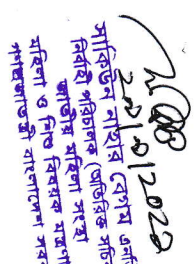 ২০/০১/২০২১
সাকিউন নাহার বেগম
নির্বাহী পরিচালক (অতিরিক্ত সচিব
জাতীয় মহিলা সংস্থা
মহিলা ও শিশু বিষয়ক মন্ত্রণা
গণপ্রজাতন্ত্রী বাংলাদেশ সরকা